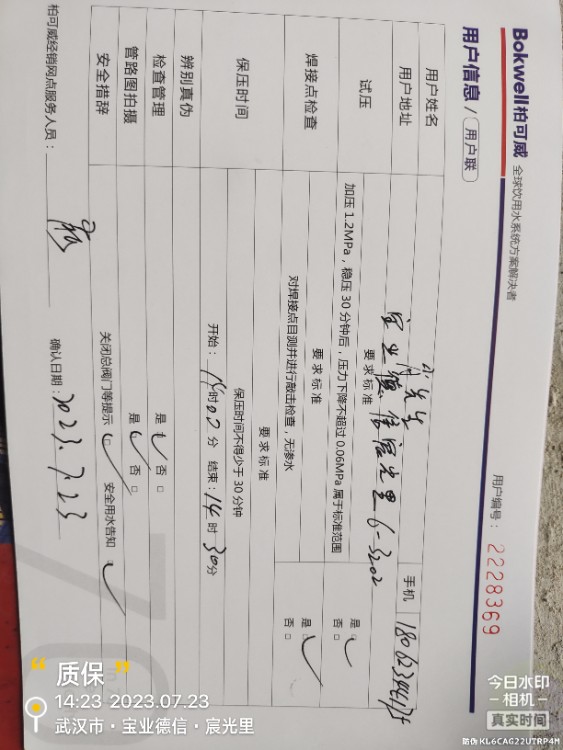 Bokwell柏可威 全球饮用水系统方案解决者
用户信息 / 用户联
用户编号： 2228369
用户姓名
先生
手机
用户地址
宝业德信宸光里 6-3202
试压
要求标准
加压 1.2MPa，稳压 30 分钟后，压力下降不超过 0.06MPa 属于标准范围
是□
否□
焊接点检查
要求标准
对焊接点目测并进行敲击检查，无渗水
是□
否□
保压时间
要求标准
保压时间不得少于 30 分钟
开始：14时00分 结束：14时30分
辨别真伪
检查管理
是□ 否□
管路图拍摄
是□ 否□
安全措辞
关闭总阀门等提示 安全用水告知
柏可威经销网点服务人员：
确认日期：2023.7.23
质保
14:23 2023.07.23
武汉市·宝业德信·宸光里
今日水印
相机
真实时间
防伪 KL6CAG22UTRP4M